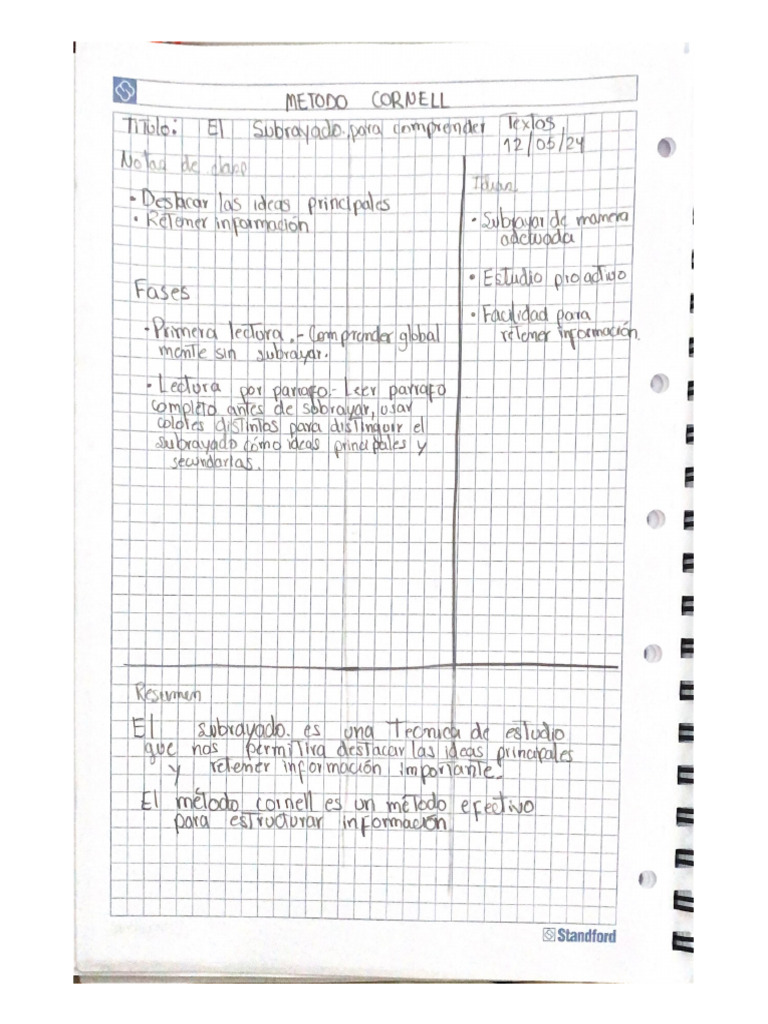 METODO CORNELL
Titulo: El Subrayado para comprender Textos
12/05/24
Notas de clase
• Destacar las ideas principales
• Retener información
Fases
• Primera lectura.- Comprender global
mente sin subrayar.
• Lectura por parrafo.- Leer parrafo
completo antes de subrayar, usar
colores distintos para distinguir el
subrayado cómo ideas principales y
secundarias.
• Subrayar de manera
adecuada
• Estudio pro activo
• Facilidad para
retener información.
Resumen
El subrayado. es una Tecnica de estudio
que nos permitira destacar las ideas principales
y retener información importante.
El método cornell es un método efectivo
para estructurar información
Standford